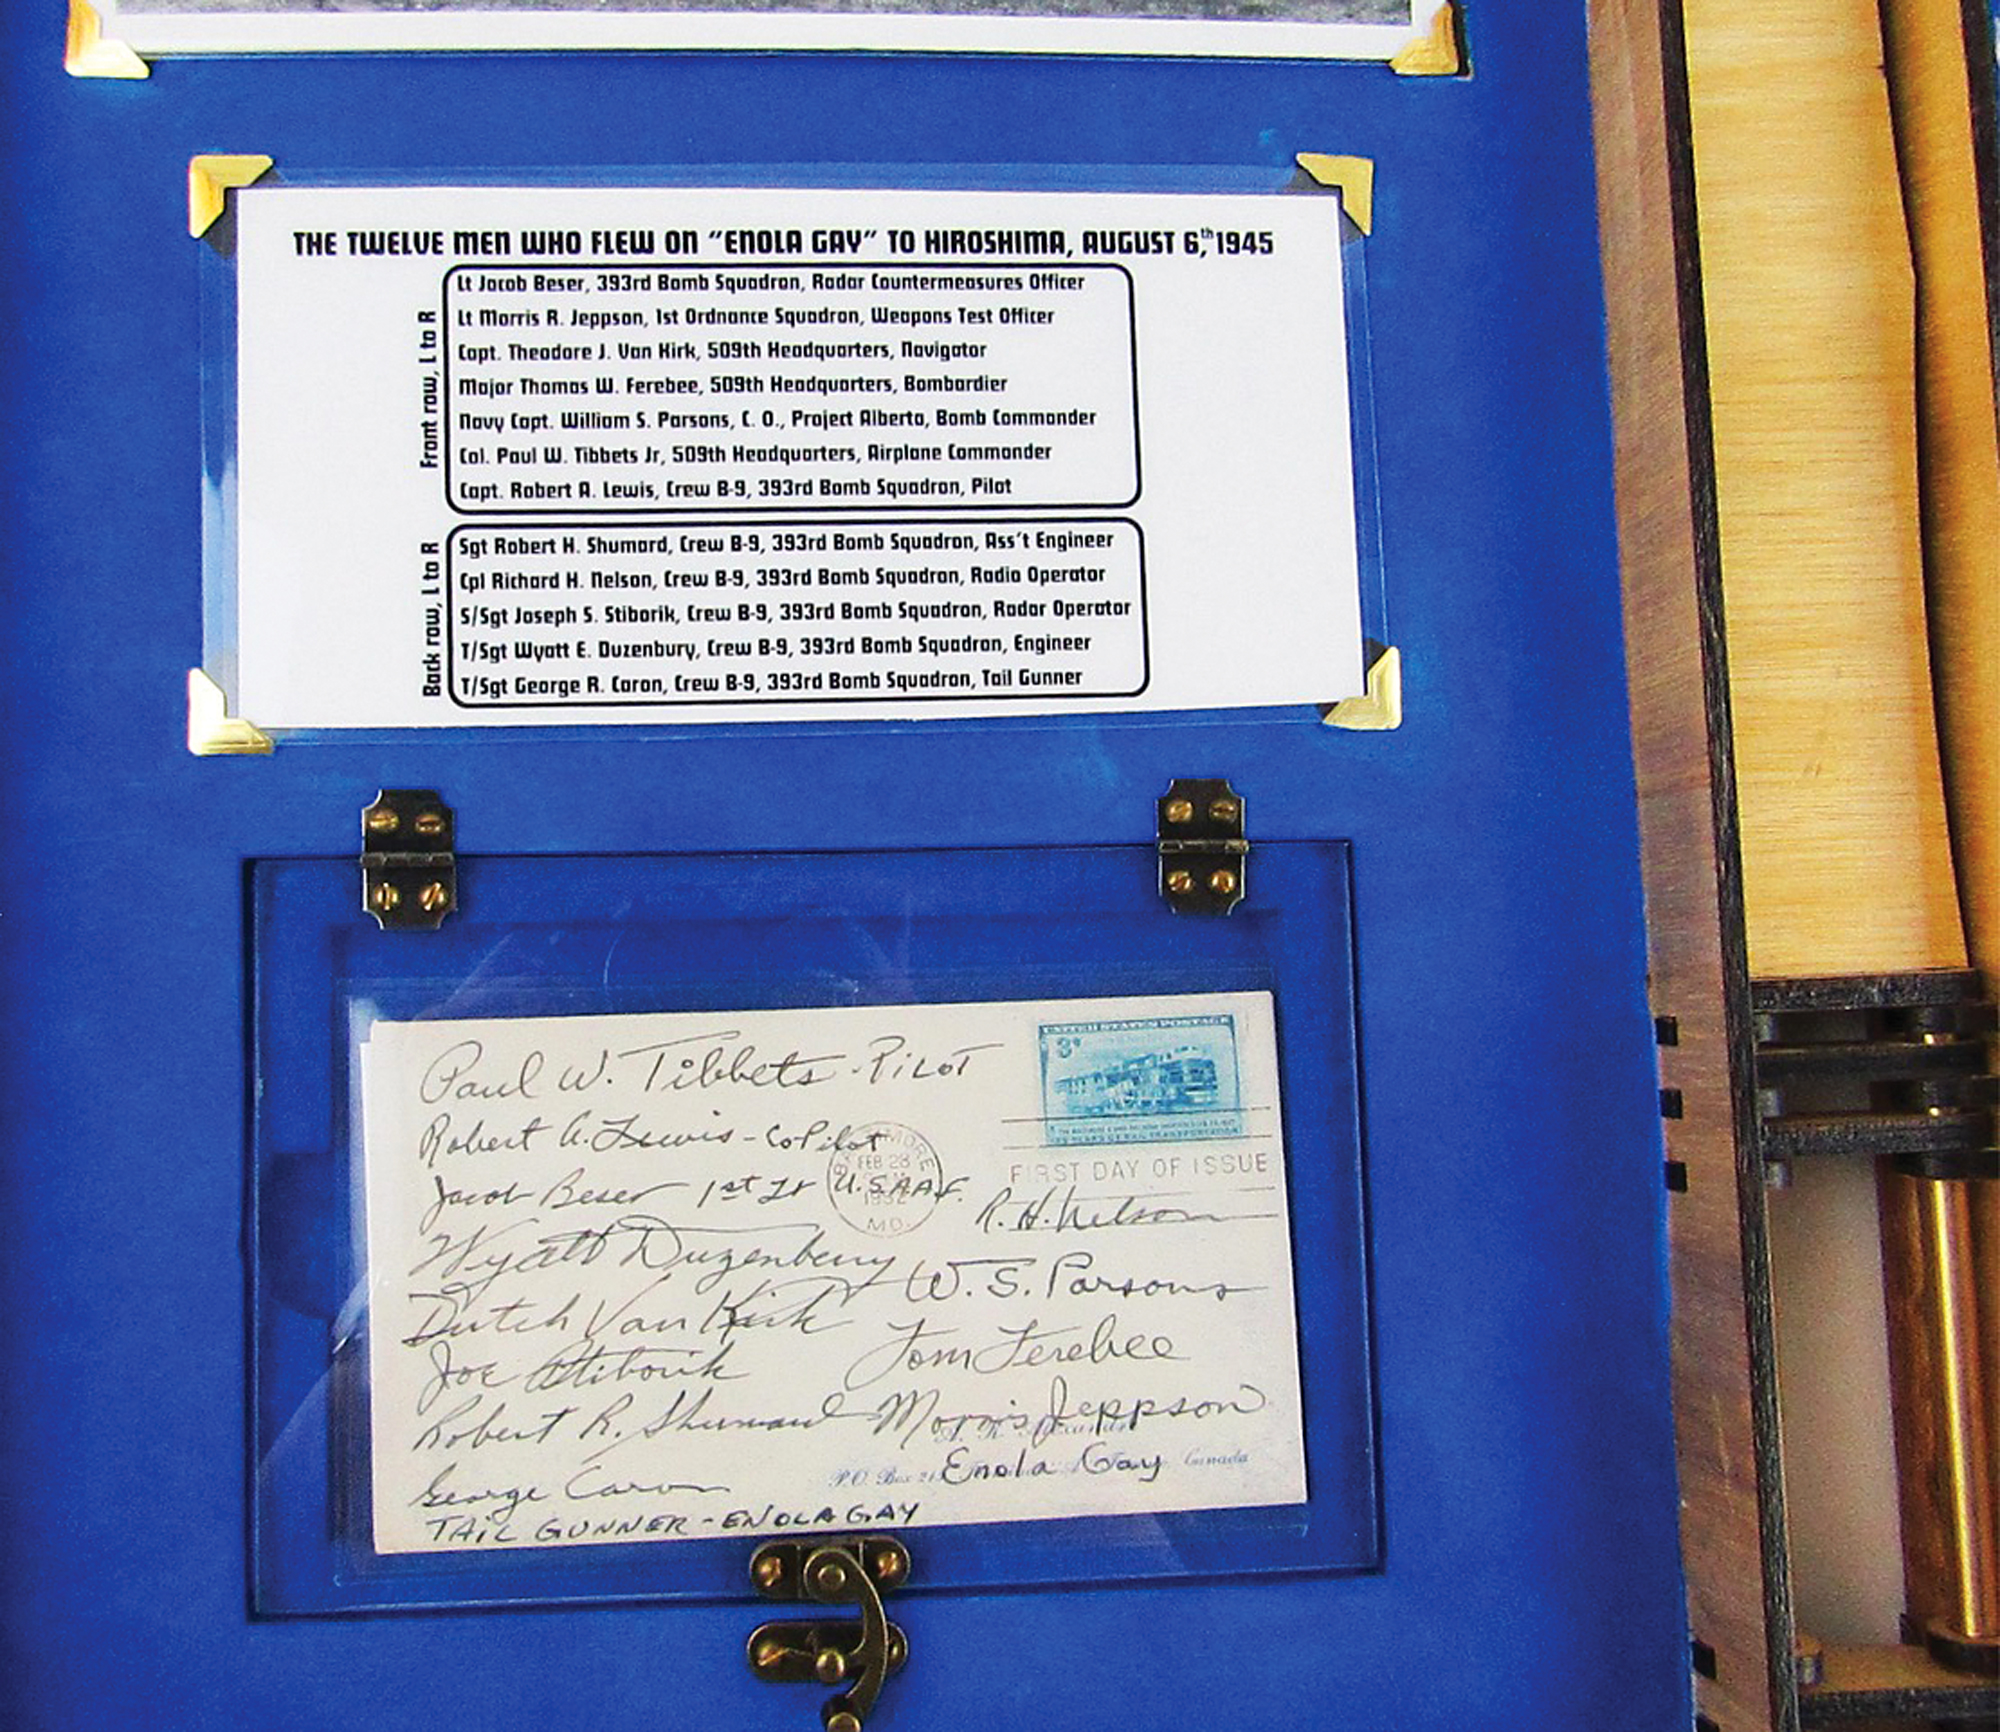 THE TWELVE MEN WHO FLEW ON "ENOLA GAY" TO HIROSHIMA, AUGUST 6,th 1945
Front row, L to R
Lt Jacob Beser, 393rd Bomb Squadron, Radar Countermeasures Officer
Lt Morris R. Jeppson, 1st Ordnance Squadron, Weapons Test Officer
Capt. Theodore J. Van Kirk, 509th Headquarters, Navigator
Major Thomas W. Ferebee, 509th Headquarters, Bombardier
Navy Capt. William S. Parsons, C. O., Project Alberta, Bomb Commander
Col. Paul W. Tibbets Jr, 509th Headquarters, Airplane Commander
Capt. Robert A. Lewis, Crew B-9, 393rd Bomb Squadron, Pilot
Back row, L to R
Sgt Robert H. Shumard, Crew B-9, 393rd Bomb Squadron, Ass't Engineer
Cpl Richard H. Nelson, Crew B-9, 393rd Bomb Squadron, Radio Operator
S/Sgt Joseph S. Stiborik, Crew B-9, 393rd Bomb Squadron, Radar Operator
T/Sgt Wyatt E. Duzenbury, Crew B-9, 393rd Bomb Squadron, Engineer
T/Sgt George R. Caron, Crew B-9, 393rd Bomb Squadron, Tail Gunner
UNITED STATES POSTAGE
3¢
Paul W. Tibbets - Pilot
Robert A. Lewis - CoPilot
BALTIMORE
FEB 28
1952
MD.
FIRST DAY OF ISSUE
Jacob Beser 1st Lt U.S.A.A.F.
R. H. Nelson
Wyatt Duzenberry
W. S. Parsons
Dutch Van Kirk
Tom Ferebee
Joe Stiborik
Robert R. Shumard
Morris Jeppson
Enola Gay
P.O. Box Canada
George Caron
TAIL GUNNER - ENOLA GAY